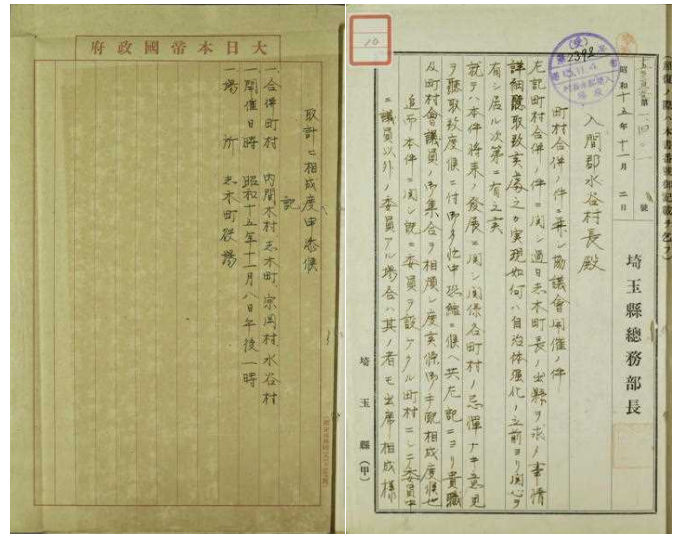 昭和十五年十一月二日
埼玉縣總務部長
入間郡水谷村長殿
町村合併ノ件ニ付協議會開催ノ件
左記町村合併ノ件ニ関シ過日志木町長ノ出縣ヲ求メ事情
詳細聽取致候處之ガ実現如何ハ自治体強化ノ立前ヨリ関心ヲ
有シ居ル次第ニ有之
就テハ本件将来ノ発展ニ関シ関係各町村ノ忌憚ナキ意見
ヲ聽取致度候ニ付御多忙中恐縮ニ候ヘ共左記ニヨリ貴職
及町村會議員ノ御集合ヲ相煩シ度候條御手配相成度候也
追而本件ニ関シ既ニ委員ヲ設ケタル町村ニシテ委員中
ニ議員以外ノ委員アル場合ハ其ノ者モ出席相成様
埼玉縣(甲)
大日本帝國政府
取計ニ相成度申添候
記
一合併町村 内間木村志木町宗岡村水谷村
一開催日時 昭和十五年十一月八日午後一時
一場所 志木町役場